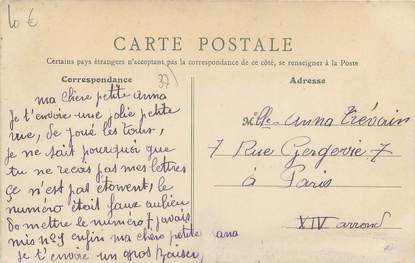 10 €
CARTE POSTALE
Certains pays étrangers n'acceptant pas la correspondance de ce côté, se renseigner à la Poste
Correspondance
37
Adresse
ma chère petite anna
Je t'envoie une jolie petite
vue, de joué les Tours,
je ne sait pourquoi que
tu ne recois pas mes lettres
ce n'est pas étonent, le
numéro était faux aulieu
de mettre le numéro 7 javais
mis n° enfin ma chère petite nana
Je t'envoie un gros baiser
Mlle Anna Trévain
7 Rue Gergovie 7
à Paris
XIV arrond